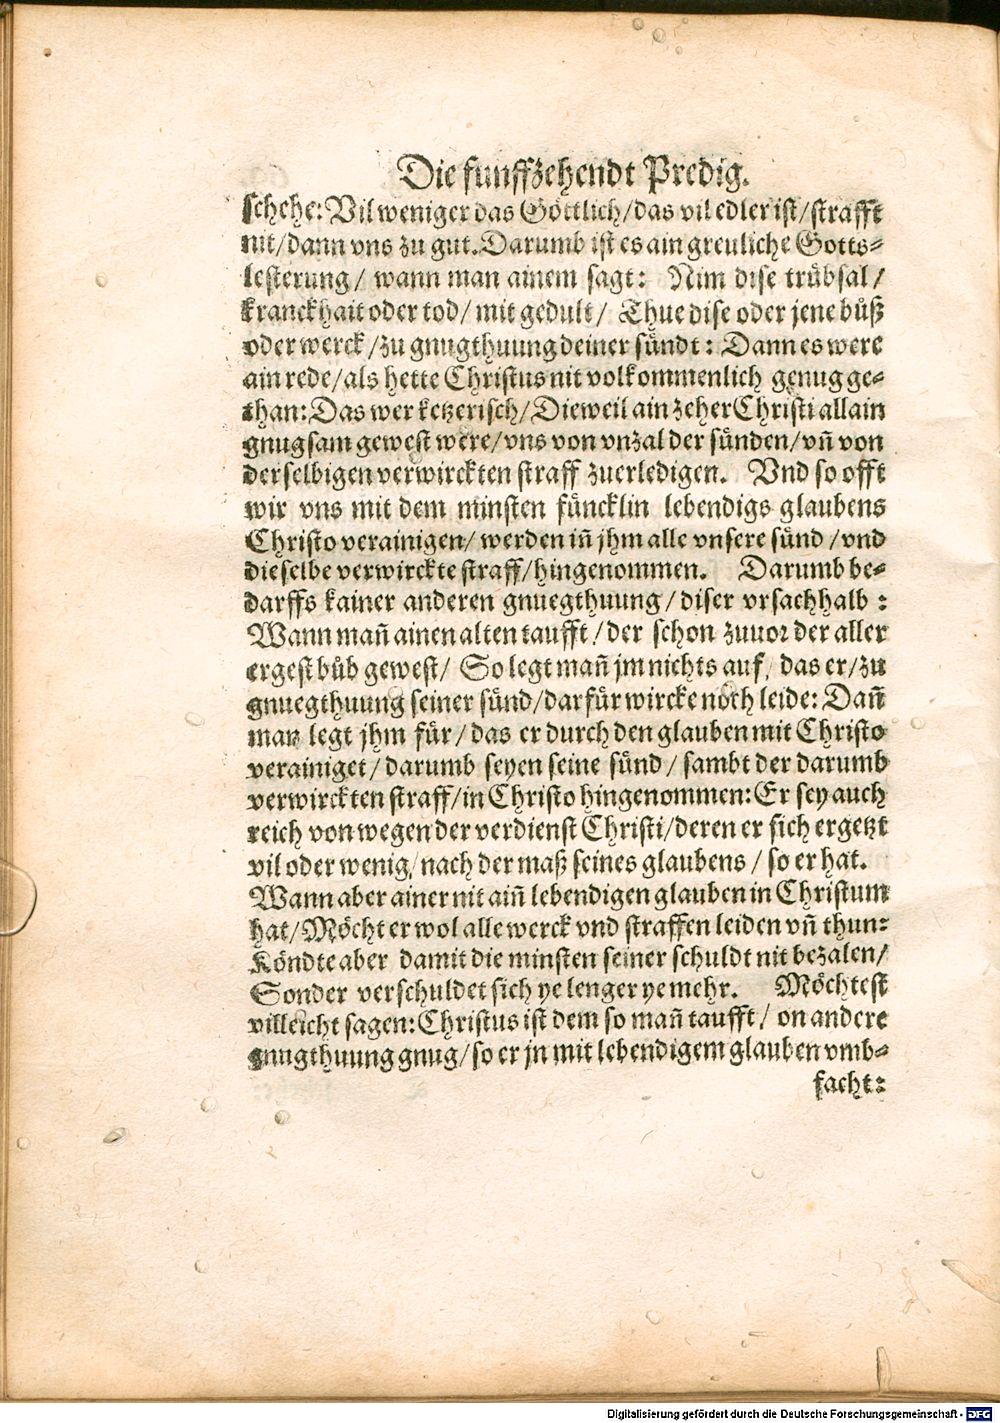 Die funffzehendt Predig.
schehe: Vil weniger das Göttlich/das vil edler ist/strafft
nit/dann vns zu gut. Darumb ist es ain greuliche Gotts-
lesterung/ wann man ainem sagt: Nim dise trübsal/
kranckhait oder tod/ mit gedult/ Thue dise oder jene bůß
oder werck/zu gnugthuung deiner sündt: Dann es were
ain rede/als hette Christus nit volkommenlich genug ge-
than: Das wer ketzerisch/Dieweil ain zeher Christi allain
gnugsam gewest were/vns von vnzal der sünden/vñ von
derselbigen verwirckten straff zuerledigen. Vnd so offt
wir vns mit dem minsten füncklin lebendigs glaubens
Christo verainigen/ werden iñ jhm alle vnsere sünd/vnd
dieselbe verwirckte straff/hingenommen. Darumb be-
darffs kainer anderen gnuegthuung/diser vrsachhalb:
Wann mañ ainen alten taufft/der schon zuuor der aller
ergest bůb gewest/ So legt mañ jm nichts auf, das er/zu
gnuegthuung seiner sünd/darfür wircke noch leide: Dañ
man legt jhm für/das er durch den glauben mit Christo
verainiget/darumb seyen seine sünd/sambt der darumb
verwirckten straff/in Christo hingenommen: Er sey auch
reich von wegen der verdienst Christi/deren er sich ergetzt
vil oder wenig/nach der maß seines glaubens/so er hat.
Wann aber ainer nit aiñ lebendigen glauben in Christum
hat/Möcht er wol alle werck vnd straffen leiden vñ thun:
Köndte aber damit die minsten seiner schuldt nit bezalen/
Sonder verschuldet sich ye lenger ye mehr. Möchtest
villeicht sagen: Christus ist dem so mañ taufft/ on andere
gnugthuung gnug/so er jn mit lebendigem glauben vmb-
facht:
Digitalisierung gefördert durch die Deutsche Forschungsgemeinschaft - DFG